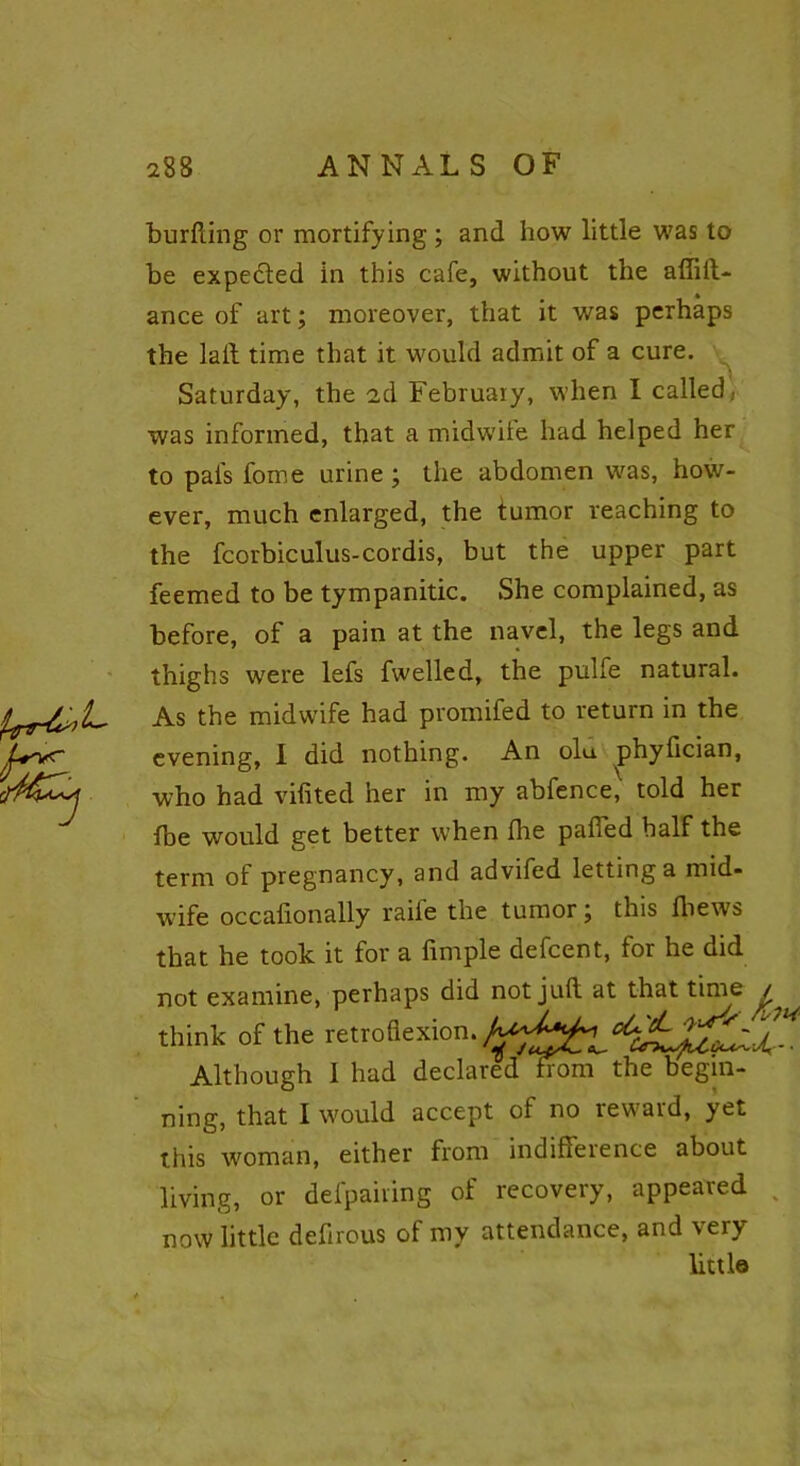 288 ANNALS OF
burſting or mortifying; and how little was to
be expected in this caſe, without the aſſiſt-
ance of art; moreover, that it was perhaps
the laſt time that it would admit of a cure.
Saturday, the 2d February, when I called,
was informed, that a midwife had helped her
to paſs ſome urine; the abdomen was, how-
ever, much enlarged, the tumor reaching to
the ſcorbiculus-cordis, but the upper part
ſeemed to be tympanitic. She complained, as
before, of a pain at the navel, the legs and
thighs were leſs ſwelled, the pulſe natural.
As the midwife had promiſed to return in the
evening, I did nothing. An old phyſician,
who had viſited her in my abſence, told her
ſhe would get better when ſhe paſſed half the
term of pregnancy, and adviſed letting a mid-
wife occaſionally raiſe the tumor; this ſhews
that he took it for a ſimple deſcent, for he did
not examine, perhaps did not juſt at that time
think of the retroflexion.
Although I had declared from the begin-
ning, that I would accept of no reward, yet
this woman, either from indifference about
living, or deſpairing of recovery, appeared
now little deſirous of my attendance, and very
little